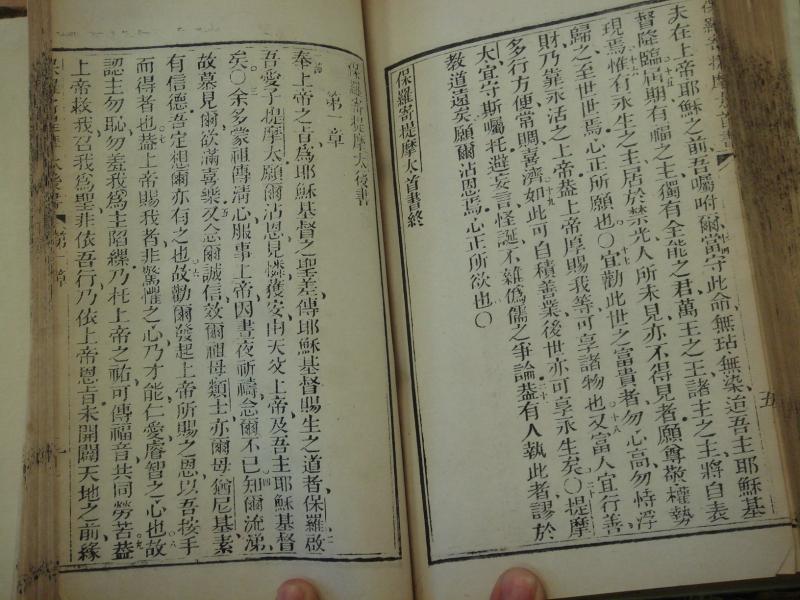 保羅寄提摩太首書
五
夫在上帝耶穌之前吾囑咐爾當守此命無玷無染迨吾主耶穌基
督降臨屆期有福之主獨有全能之君萬王之王諸主之主將自表
現焉惟有永生之主居於禁光人所未見亦不得見者願尊敬權勢
歸之至世世焉心正所願也〇宜勸此世之富貴者勿心高勿恃浮
財乃靠永活之上帝蓋上帝厚賜我等可享諸物也又富人宜行善
多行方便常賙喜濟如此可自積善業後世亦可享永生矣〇提摩
太宜守斯囑托避妄言怪誕不雜僞儒之爭論蓋有人執此者謬於
教道遠矣願爾沾恩焉心正所欲也〇
保羅寄提摩太首書終
保羅寄提摩太後書
第一章
奉上帝之旨爲耶穌基督之聖差傳耶穌基督賜生之道者保羅啟
吾愛子提摩太願爾沾恩見憐獲安由天父上帝及吾主耶穌基督
矣〇余多蒙祖傳淸心服事上帝因晝夜祈禱念爾不已知爾流涕
故慕見爾欲滿喜樂又念爾誠信效爾祖母類士亦爾母猶尼基素
有信德吾定想爾亦有之也故勸爾發起上帝所賜之恩以吾按手
而得者也蓋上帝賜我者非驚懼之心乃才能仁愛睿智之心也故
認主勿恥勿羞我爲主陷縲乃托上帝之祐可傳福音共同勞苦蓋
上帝救我召我爲聖非依吾行乃依上帝恩旨未開闢天地之前緣
太後書 第一章